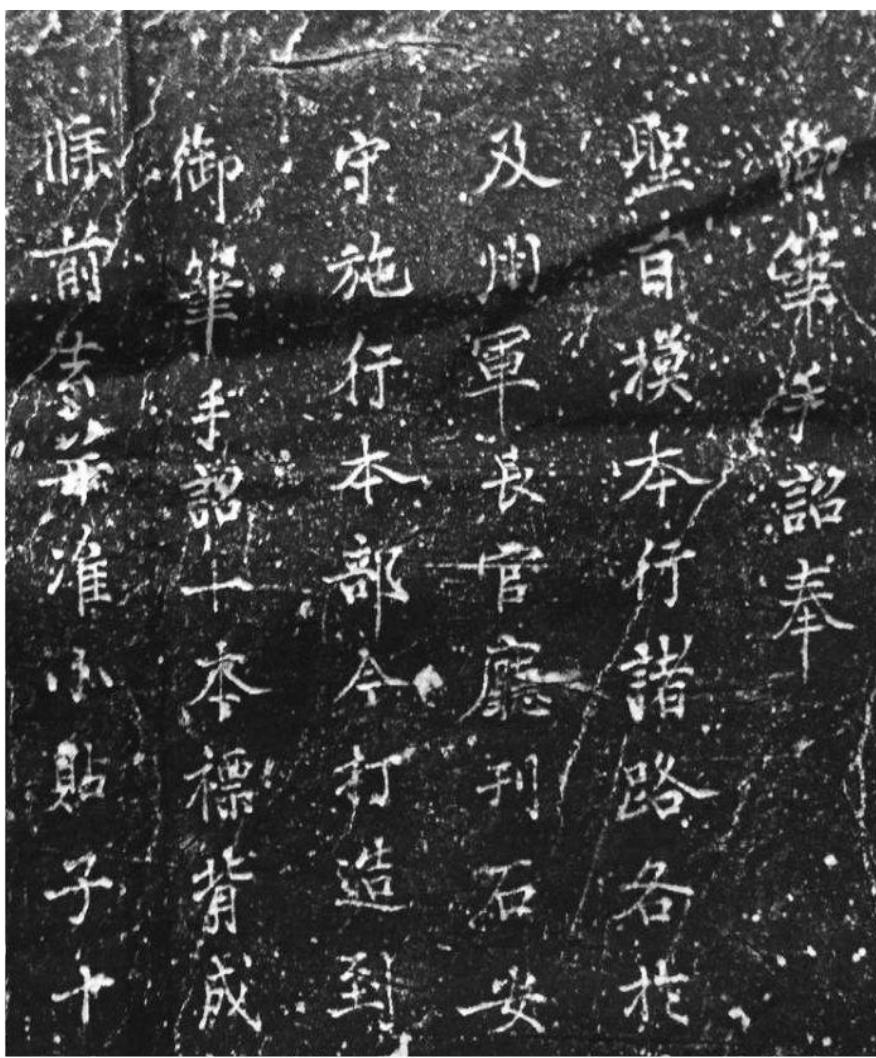 御筆手詔奉
聖旨摸本行諸路各於
及州軍長官廳刊石安
守施行本部今打造到
御筆手詔一本褾背成
條前去并准小貼子十